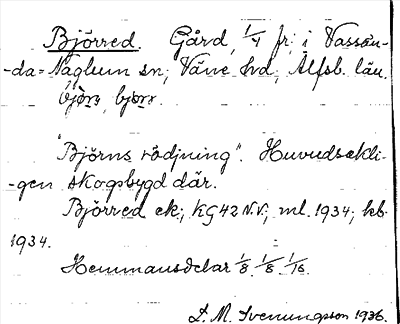 Björred. Gård, 1/4 fr. i Vassän-
-da=Naglum sn; Väne hd, Älfsb. län.
bjørr, bjørr.
"Björns rödjning". Huvudsakli-
-gen skogsbygd där.
Björred ek; KG42 N.V; ml. 1934; kb.
1934.
Hemmansdelar 1/8. 1/8. 1/16.
L. M. Svenungsson 1936.